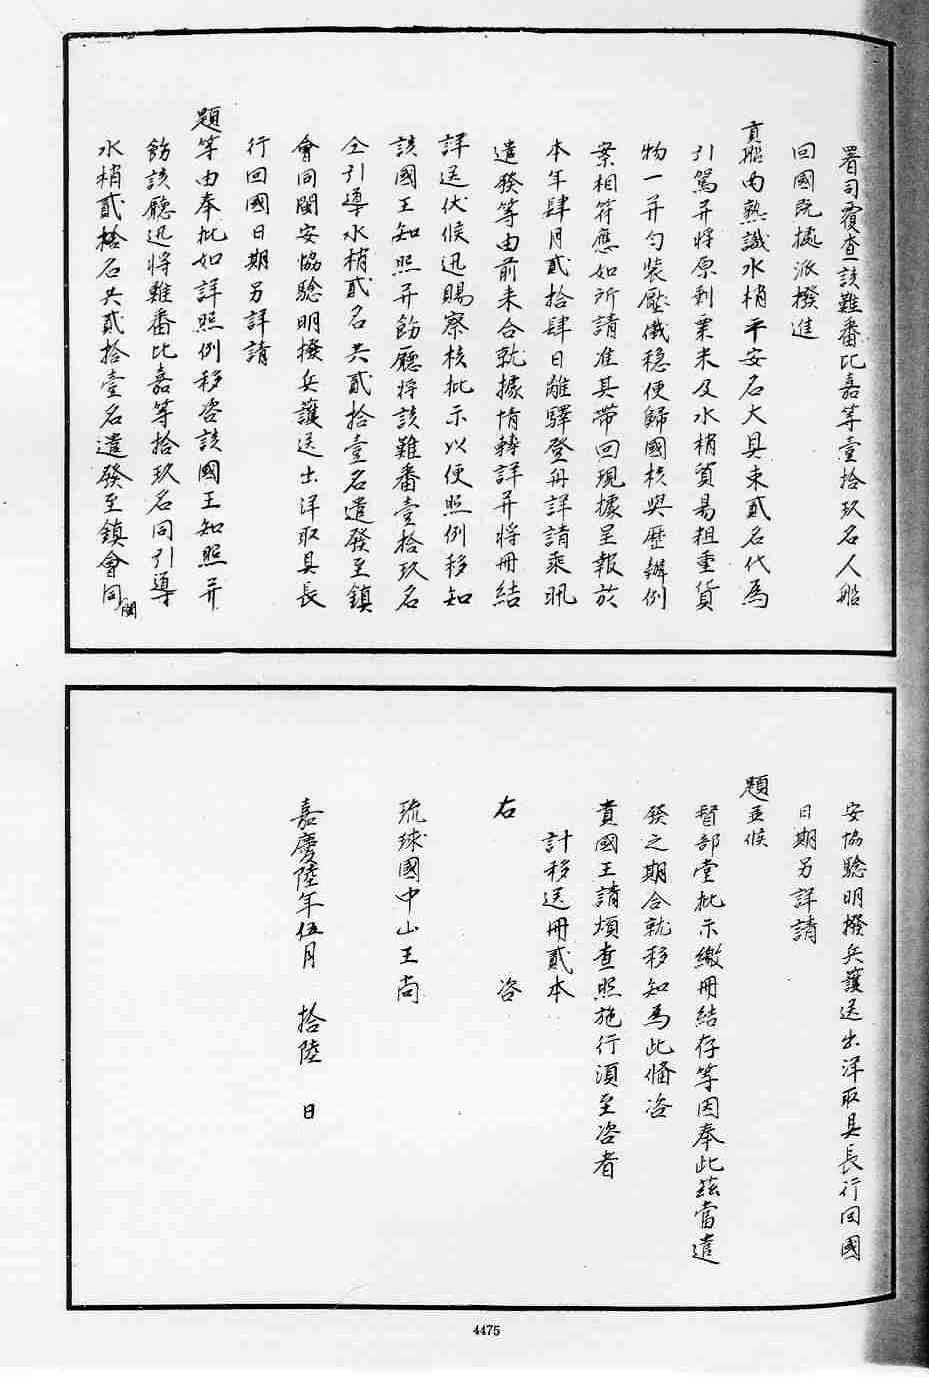 署司覆查該難番比嘉等壹拾玖名人船
回國既據派撥進
貢船內熟識水梢平安名大具束貳名代為
引駕并將原剩粟米及水梢貿易粗重貨
物一并勻裝壓儎穩便歸國核與歷辦例
案相符應如所請准其帶回現據呈報於
本年肆月貳拾肆日離驛登舟詳請乘汛
遣發等由前來合就據情轉詳并將冊結
詳送伏候迅賜察核批示以便照例移知
該國王知照并飭廳將該難番壹拾玖名
仝引導水梢貳名共貳拾壹名遣發至鎮
會同閩安協驗明撥兵護送出洋取具長
行回國日期另詳請
題等由奉批如詳照例移咨該國王知照并
飭該廳迅將難番比嘉等拾玖名同引導
水梢貳拾名共貳拾壹名遣發至鎮會同閩
安協驗明撥兵護送出洋取具長行回國
日期另詳請
題並候
督部堂批示繳冊結存等因奉此茲當遣
發之期合就移知為此備咨
貴國王請煩查照施行須至咨者
計移送冊貳本
右 咨
琉球國中山王尚
嘉慶陸年伍月 拾陸 日
4475